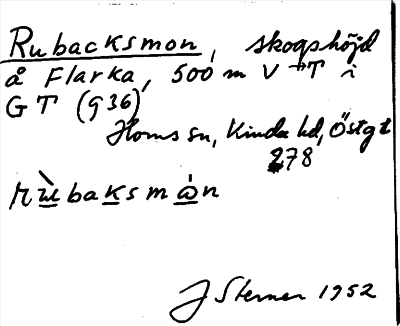 Rubacksmon, skogshöjd
å Flarka, 500 m V +T i
G T (936)
Horns sn, Kinda hd, Östgt
278
rùbaksmån
J Sterner 1952